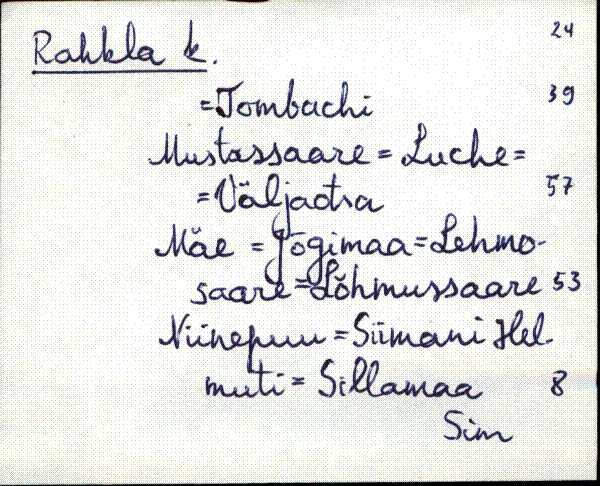 Rahkla k. 24
=Tombachi 39
Mustassaare = Luche =
= Väljaotsa 57
Mäe = Jõgimaa = Lehmo-
saare = Lõhmussaare 53
Niinepuu = Siimani Hel-
muti = Sillamaa 8
Sim